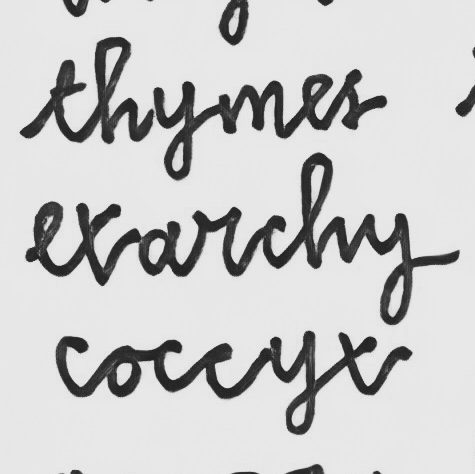 thymes
exarchy
coccyx